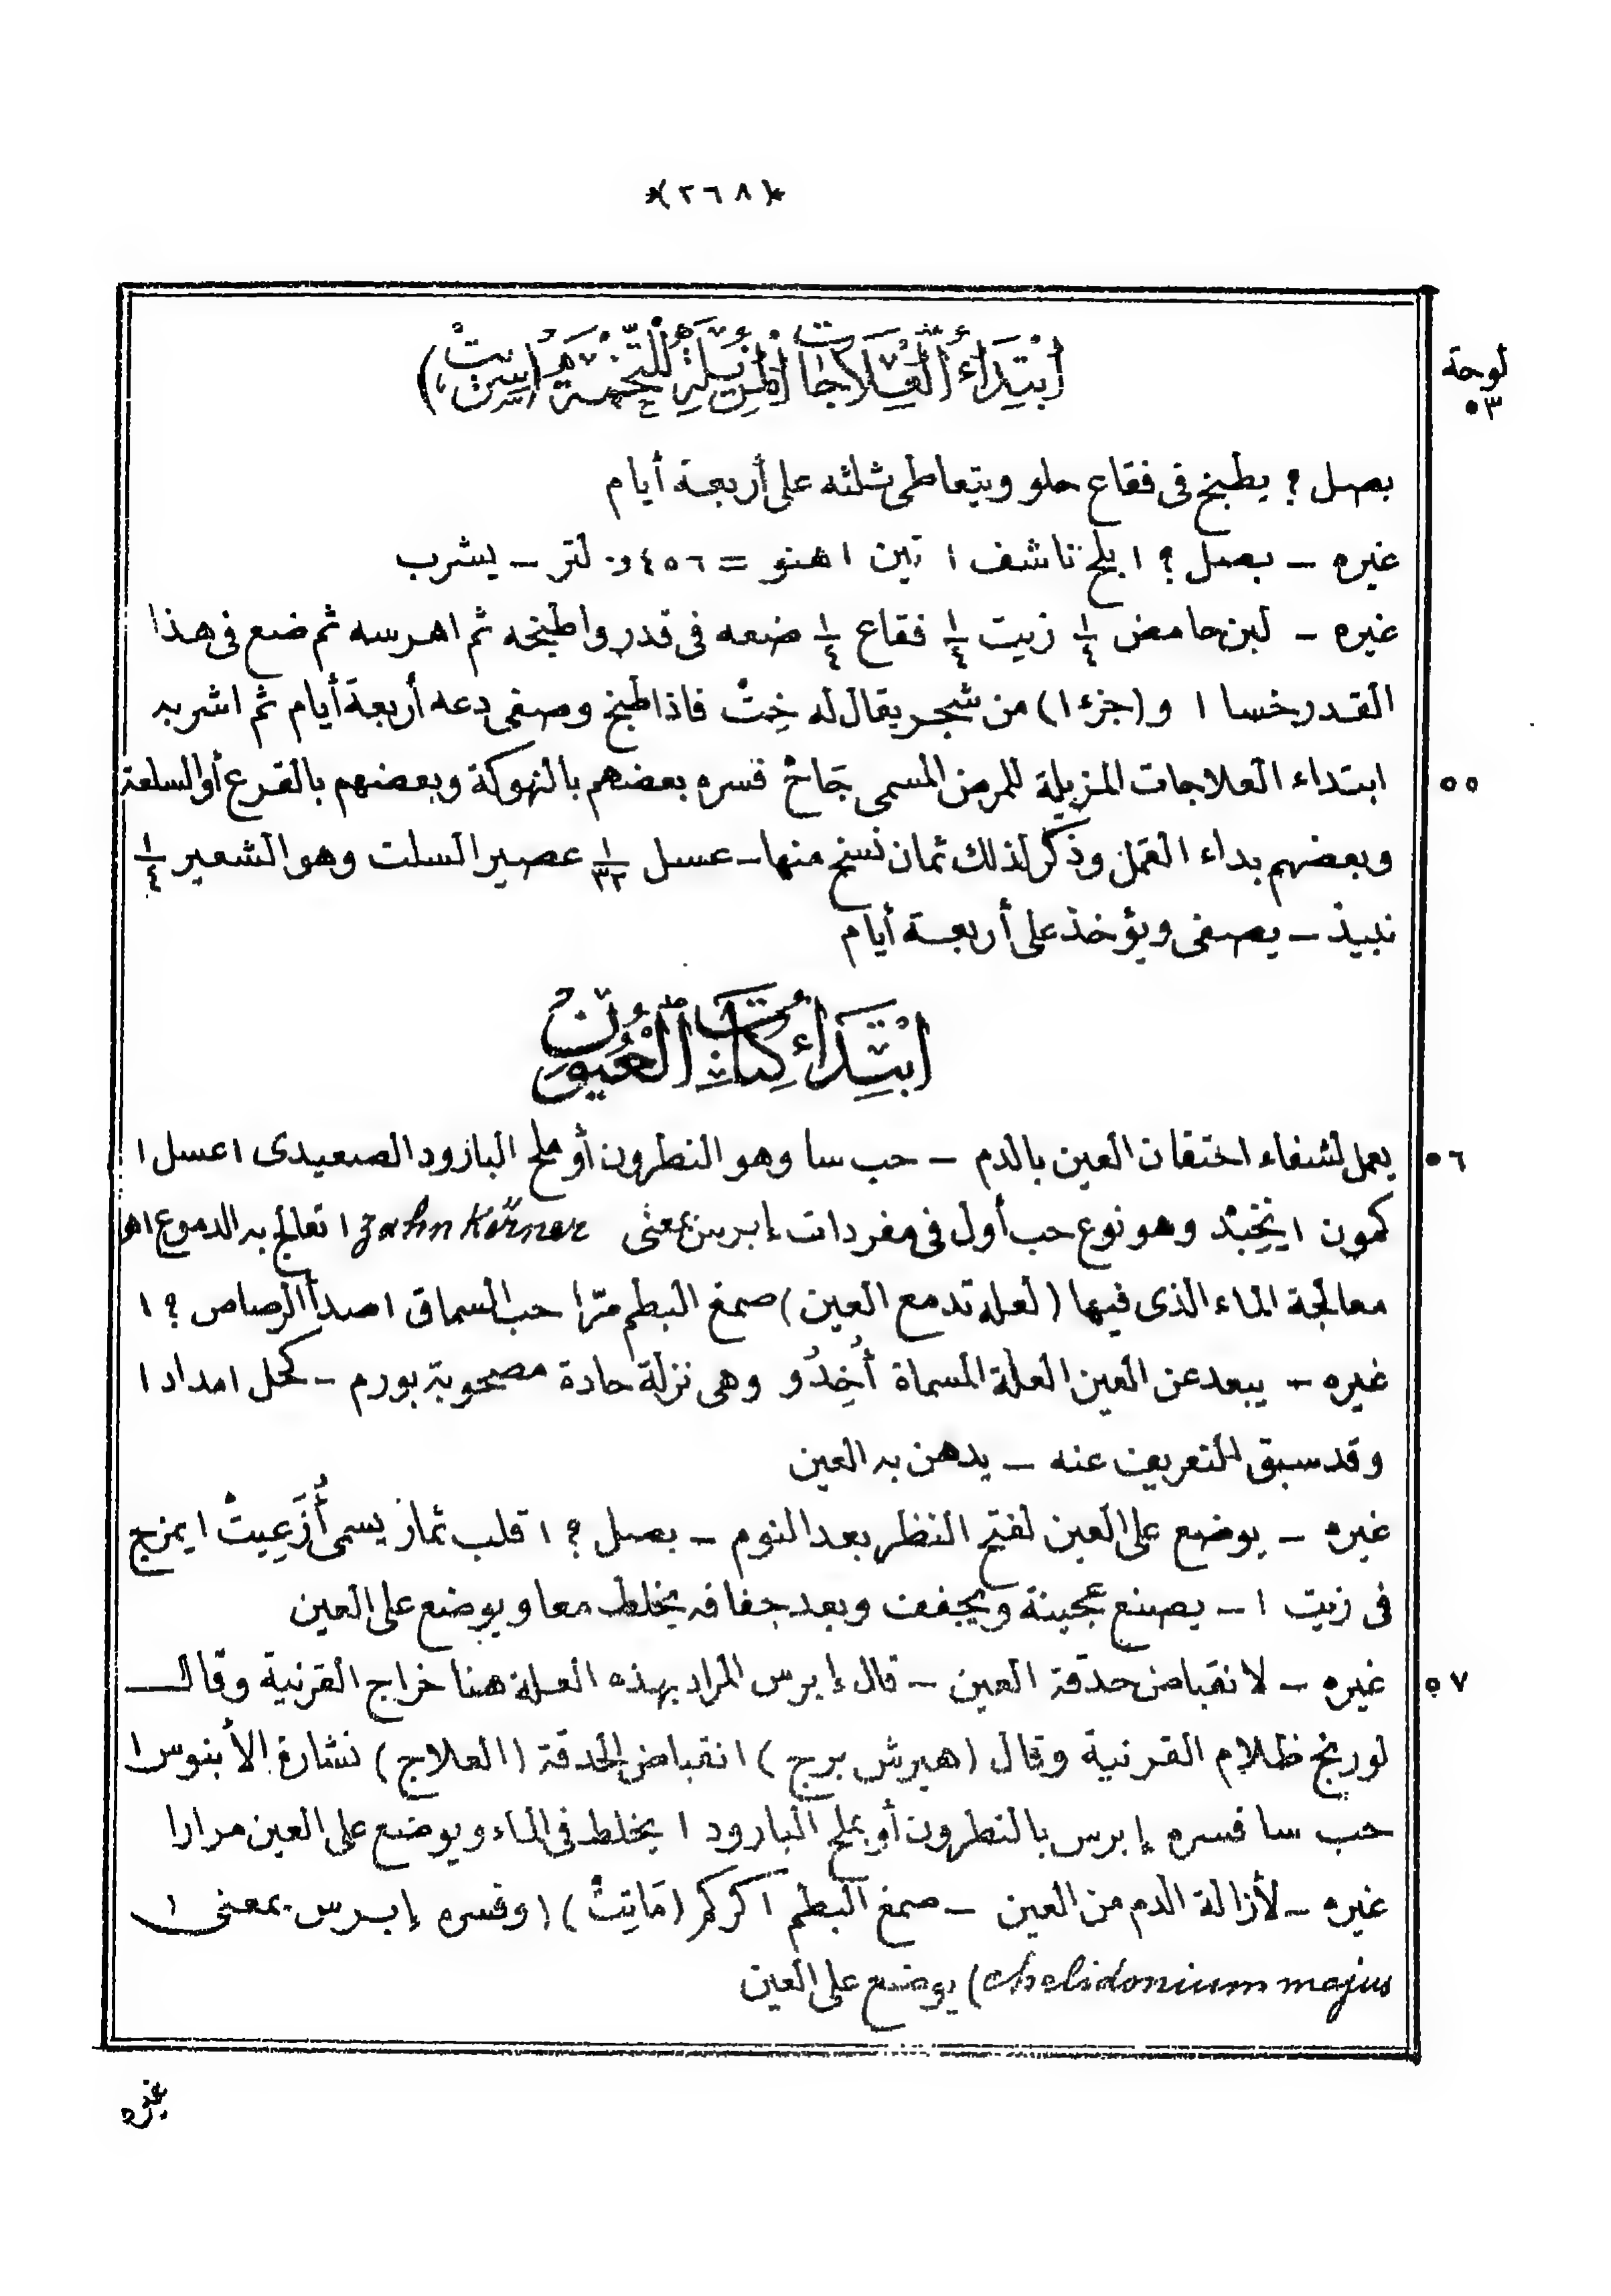 *(٢٦٨)*
لوحة
٥٣
ابْتِدَاءُ الْعِلَاجَاتِ الْمُزِيلَةِ لِلتُّخَمَةِ
بصل ؟ يطبخ فى فقاع حلو ويتعاطى ثلثه على أربعة أيام
غيره – بصل ؟ ١ بلح ناشف ١ تين ١ هنو = ٤٥٦و٠ لتر – يشرب
غيره – لبن حامض ١/٤ زيت ١/٤ فقاع ١/٤ ضعه فى قدر واطبخه ثم اهرسه ثم ضع فى هذا
القدر خسا ١ و(جزء ١) من شجر يقال له خِتْ فاذا طبخ وصفى دعه أربعة أيام ثم اشربه
٥٥
ابتداء العلاجات المزيلة للمرض المسمى فسره بعضهم بالنهوكة وبعضهم بالقرع أو السلعة
وبعضهم بداء القمل وذكر لذلك ثمان نسخ منها – عسل ١/٣٢ عصير السلت وهو الشعير ١/٤
نبيذ – يصفى ويؤخذ على أربعة أيام
ابْتِدَاءُ كِتَابِ الْعُيُونِ
٥٦
يعمل لشفاء اختقان العين بالدم – حب سا وهو النطرون أو ملح البارود الصعيدى ١ عسل ١
كمون ١ وهو نوع حب أول فى مفردات إبرس بمعنى zahn Körner ١ تعالج به الدموع اهـ
معالجة الماء الذى فيها (لعله تدمع العين) صمغ البطم مرّ ١ حب السماق ١ صدأ الرصاص ؟ ١
غيره – يبعد عن العين العلة المسماة أُخِدُو وهى نزلة حادة مصحوبة بورم – كحل ١ مداد ١
وقد سبق التعريف عنه – يدهن به العين
غيره – يوضع على العين لفتح النظر بعد النوم – بصل ؟ ١ قلب ثمار يسمى ١ يمزج
فى زيت ١ – يصنع عجينة ويجفف وبعد جفافه يخلط معا ويوضع على العين
٥٧
غيره – لانقباض حدقة العين – قال إبرس المراد بهذه العلة هنا خراج القرنية وقال
لورنج ظلام القرنية وقال (هيرش برج) انقباض الحدقة (العلاج) نشارة الأبنوس ١
حب سا فسره إبرس بالنطرون أو بملح البارود ١ يخلط فى الماء ويوضع على العين مرارا
غيره – لأزالة الدم من العين – صمغ البطم ١ كركم (مَاتِتْ) ١ وفسره إبرس بمعنى ١
chelidonium majus) يوضع على العين
غيره